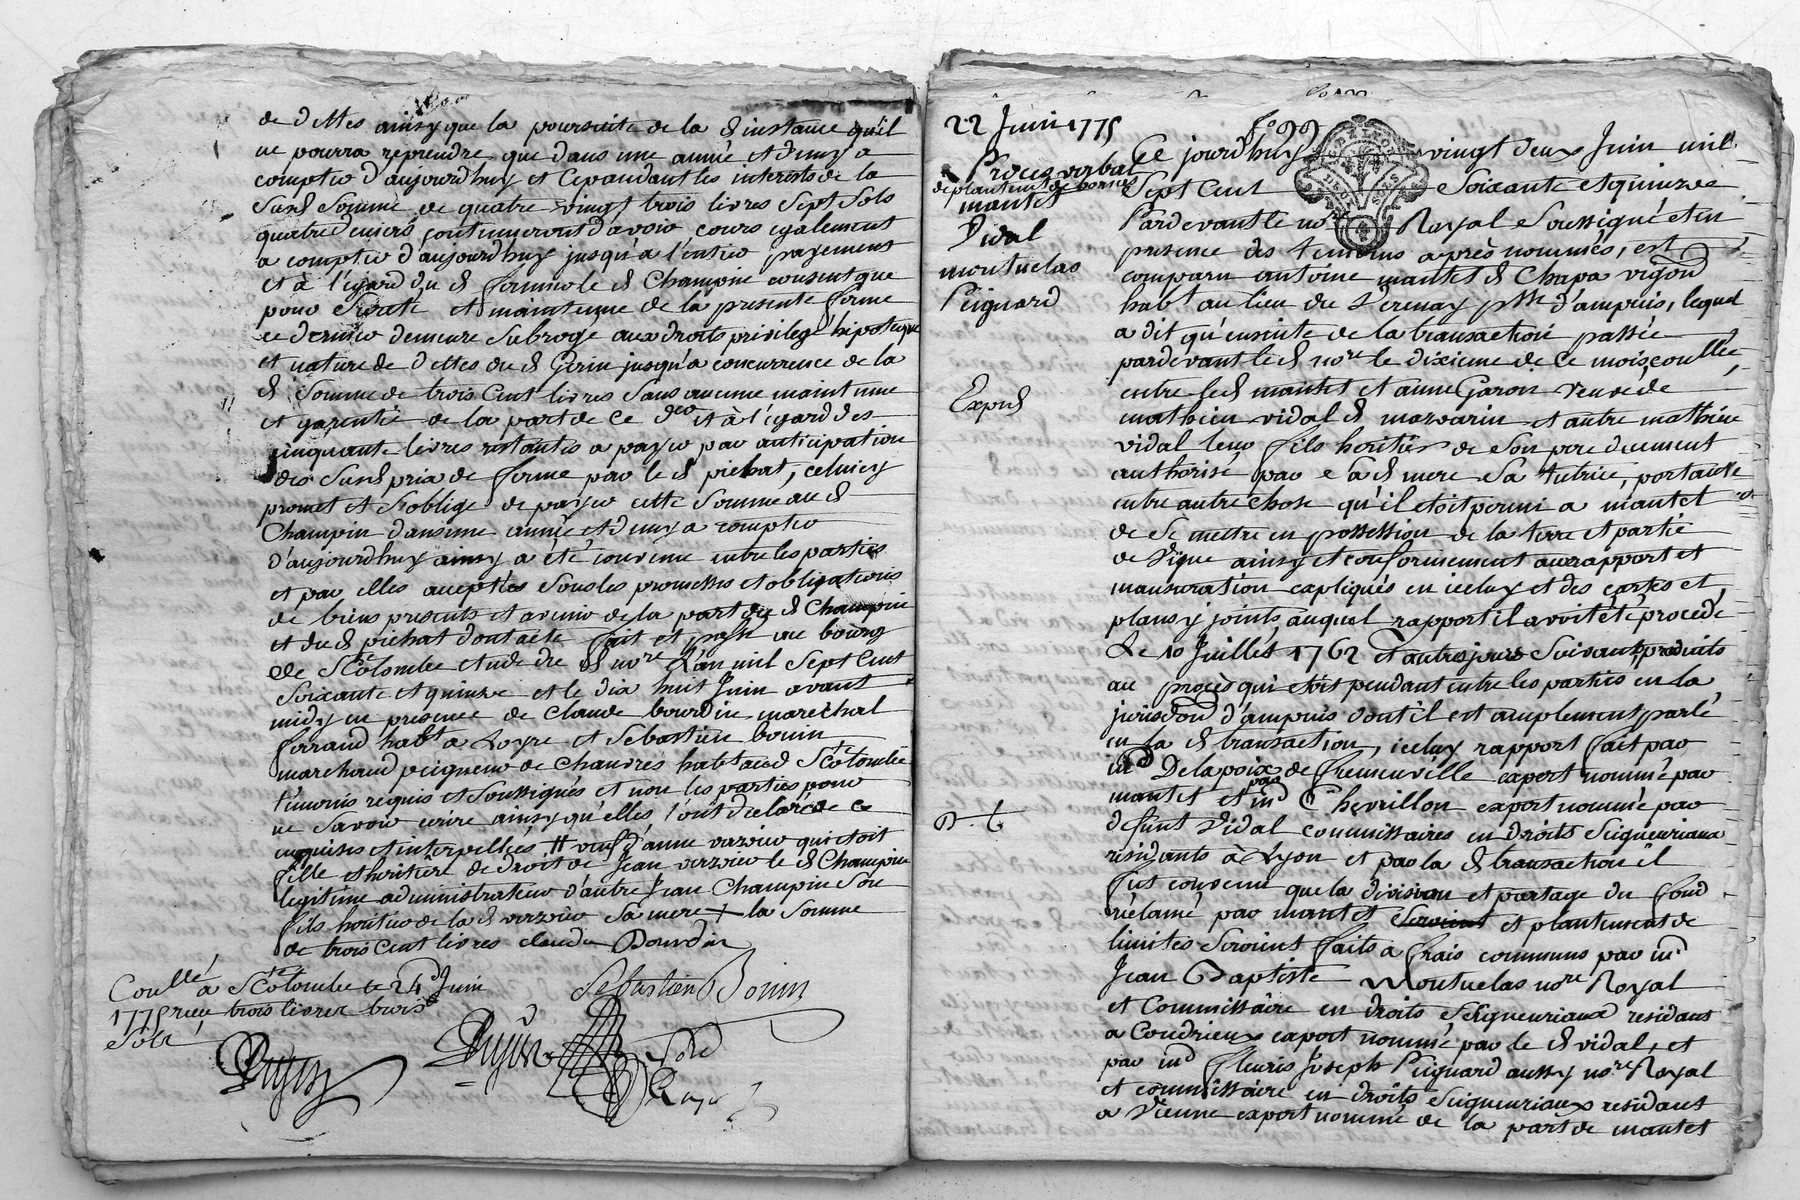 de dettes ainsy que la poursuite de la d instance qu'il
ne pourra reprendre que dans une année et demy a
compter d'aujourd'huy et cepandant les interets de la
susd somme de quatre vingt trois livres sept sols
quatre deniers continueront d'avoir cours egalement
a compter d'aujourd'huy jusqu'à l'entier payement
et à l'égard du d le d Champin consent que
pour et maintenue de la presente ferme
ce dernier demeure subrogé aux droits privilege hipoteque
et nature de dettes du d Gerin jusqu'a concurrence de la
d somme de trois cent livres sans aucune maintenue
et garentie de la part de ce der et à l'égard des
cinquante livres restantes a payer par anticipation
des susd prix de ferme par le d pichat, celuicy
promet et s'oblige de payer cette somme au d
Champin dans une année et demy a compter
d'aujourd'huy ainsy a été convenu entre les parties
et par elles acceptées sous les promesses et obligations
de biens presents et avenir de la part du d Champin
et du d pichat dont acte fait et passé au bourg
de Ste Colombe etude du d nore L'an mil sept cent
soixante et quinze et le dix huit Juin avant
midy en presence de Claude bourdin marechal
ferrand habt a Loyre et Sebastien bonin
marchand peigneur de chanvres habt aud Ste Colombe
témoins requis et soussignés et non les parties pour
ne savoir ecrire ainsy qu'elles l'ont declaré de ce
enquises et interpellées # veuf d'anne verzier qui étoit
fille et heritiere de droit de Jean verzier le d Champin
legitime administrateur d'autre Jean Champin son
fils heritier de la d verzier sa mere + la somme
de trois cent livres claude Bourdin
Sebastien Bonin
Coullé
à Ste Colombe le 24 Juin
1775 reçu trois livres trois
sols
22 Juin 1775
Procès verbal
de plantement de bornes
mantet
Vidal
montuelas
Peignard
Exped
Ce jourd'huy vingt deux Juin mil
Sept Cent soixante et quinze
Pardevant le nore Royal soussigné et en
presence des temoins après nommés, est
comparu antoine mantet d Chapa vigon
habt au lieu du Verenay psse d'ampuis, lequel
a dit qu'ensuite de la transaction passée
pardevant le d nore le dixieme de ce mois coullée,
entre led mantet et anne Garon veuve de
mathieu vidal d marvarin et autre mathieu
vidal leur fils heritier de son pere duement
authorisé par sa d mere sa tutrice, portante
entre autre chose qu'il etoit permi a mantet
de se mettre en possession de la terre et partie
de vigne ainsy et conformement au rapport et
mansuration expliqués en iceluy et des cartes et
plans y joints, auquel rapport il avoit été procedé
Le 10 Juillet 1762 et autres jours suivants, produits
au procès qui etoit pendant entre les parties en la
jurisdon d'ampuis dont il est amplement parlé
en la d transaction, iceluy rapport fait par
md Delapoix de fremenville expert nommé par
mantet et par md Chevrillon expert nommé par
defunt Vidal commissaires en droits seigneuriaux
residants à Lyon et par la d transaction il
fut convenu que la division et partage du fond
réclamé par mantet et plantement de
limites seroient faits à frais communs par md
Jean Baptiste Montuelas nore Royal
et Commissaire en droits seigneuriaux residant
a Condrieux expert nommé par le d vidal, et
par md fleuris Joseph Peignard aussy nore Royal
et commissaire en droits seigneuriaux residant
a Vienne expert nommé de la part de mantet